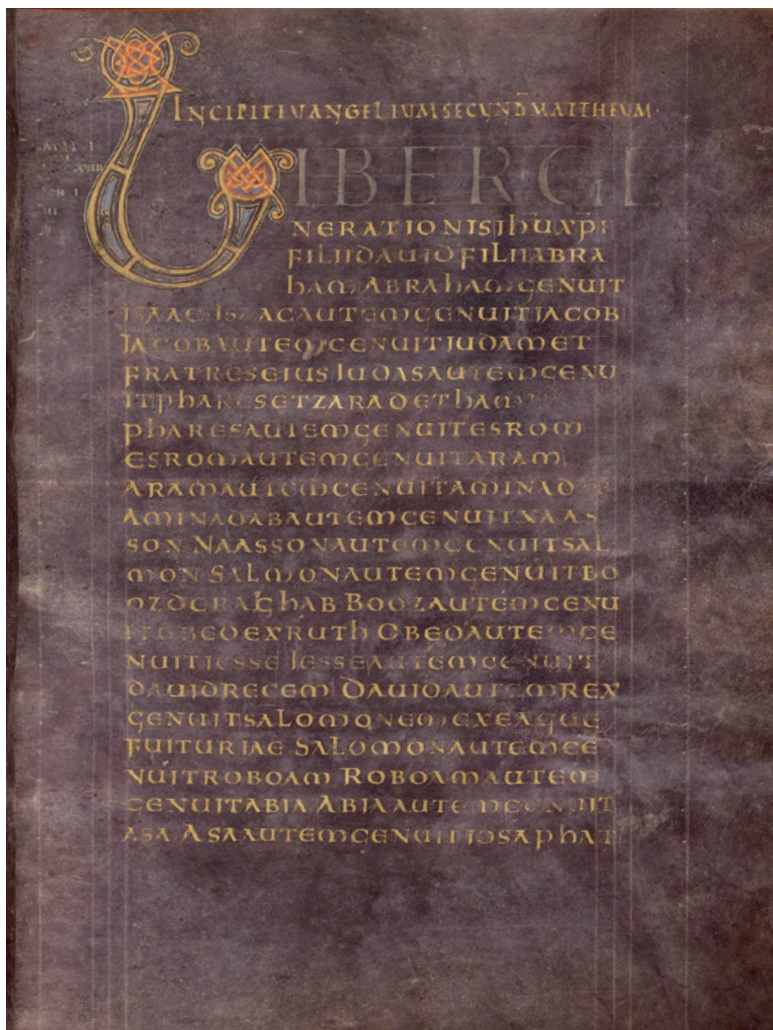 INCIPIT EVANGELIUM SECUND MATTHEUM
LIBER GE
NERATIONIS IHU XPI
FILII DAUID FILII ABRA
HAM ABRAHAM GENUIT
ISAAC ISAAC AUTEM GENUIT IACOB
IACOB AUTEM GENUIT IUDAM ET
FRATRES EIUS IUDAS AUTEM GENU
IT PHARES ET ZARAD ET HAM
PHARES AUTEM GENUIT ESROM
ESROM AUTEM GENUIT ARAM
ARAM AUTEM GENUIT AMINAD
AMINADAB AUTEM GENUIT NAAS
SON NAASSON AUTEM GENUIT SAL
MON SALMON AUTEM GENUIT BO
OZ DE RACHAB BOOZ AUTEM GENU
IT OBED EX RUTH OBED AUTEM GE
NUIT IESSE IESSE AUTEM GENUIT
DAUID REGEM DAUID AUTEM REX
GENUIT SALOMONEM EX EA QUE
FUIT URIAE SALOMON AUTEM GE
NUIT ROBOAM ROBOAM AUTEM
GENUIT ABIA ABIA AUTEM GENUIT
ASA ASA AUTEM GENUIT IOSAPHAT